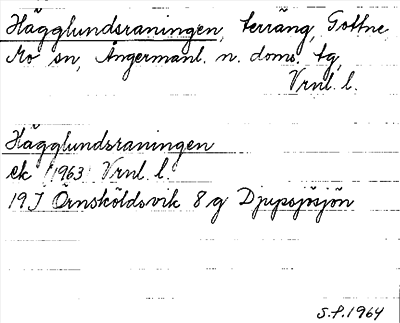 Hägglundsraningen, terräng, Gottne
Mo sn, Ångermanl. n. doms. tg,
Vrnl. l.
Hägglundsraningen
ek (1963) Vrnl. l.
19J Örnsköldsvik 8 g Djupsjösjön
S.P. 1964